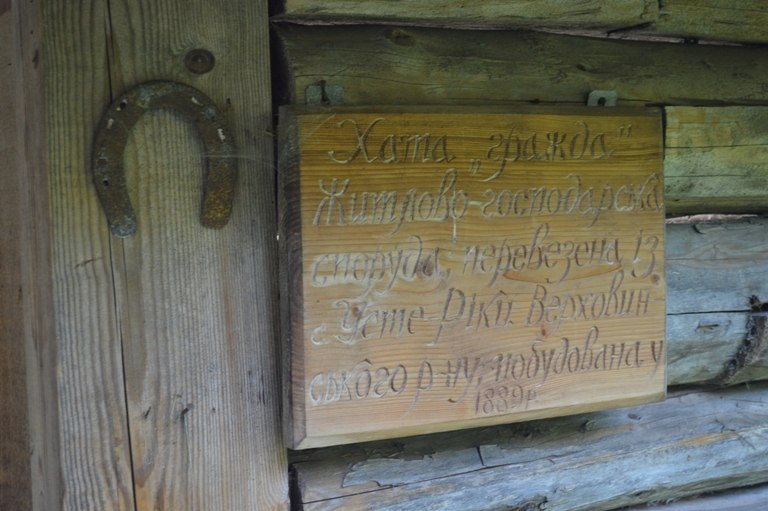 Хата „гражда"
Житлово-господарска
споруда, перевезена із
с Усте-Ріки Верховин
ського р-ну, побудована у
1889р